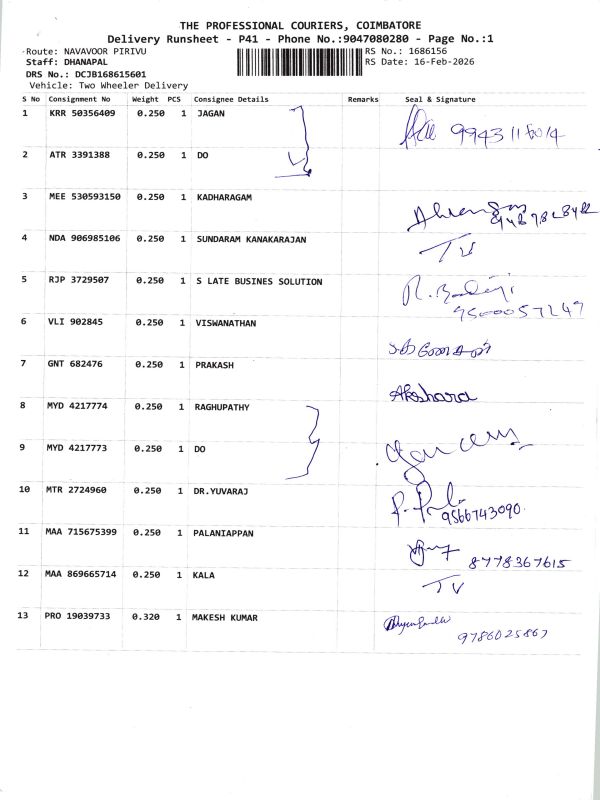 THE PROFESSIONAL COURIERS, COIMBATORE
Delivery Runsheet - P41 - Phone No.:9047080280 - Page No.:1
Route: NAVAVOOR PIRIVU RS No.: 1686156
Staff: DHANAPAL RS Date: 16-Feb-2026
DRS No.: DCJB168615601
Vehicle: Two Wheeler Delivery
S No Consignment No Weight PCS Consignee Details Remarks Seal & Signature
1 KRR 50356409 0.250 1 JAGAN
2 ATR 3391388 0.250 1 DO
3 MEE 530593150 0.250 1 KADHARAGAM
4 NDA 906985106 0.250 1 SUNDARAM KANAKARAJAN TV
5 RJP 3729507 0.250 1 S LATE BUSINES SOLUTION R. Balaji
9500057249
6 VLI 902845 0.250 1 VISWANATHAN
7 GNT 682476 0.250 1 PRAKASH Akshara
8 MYD 4217774 0.250 1 RAGHUPATHY
9 MYD 4217773 0.250 1 DO
10 MTR 2724960 0.250 1 DR.YUVARAJ 9566743090
11 MAA 715675399 0.250 1 PALANIAPPAN 8778367615
12 MAA 869665714 0.250 1 KALA TV
13 PRO 19039733 0.320 1 MAKESH KUMAR
9786025867